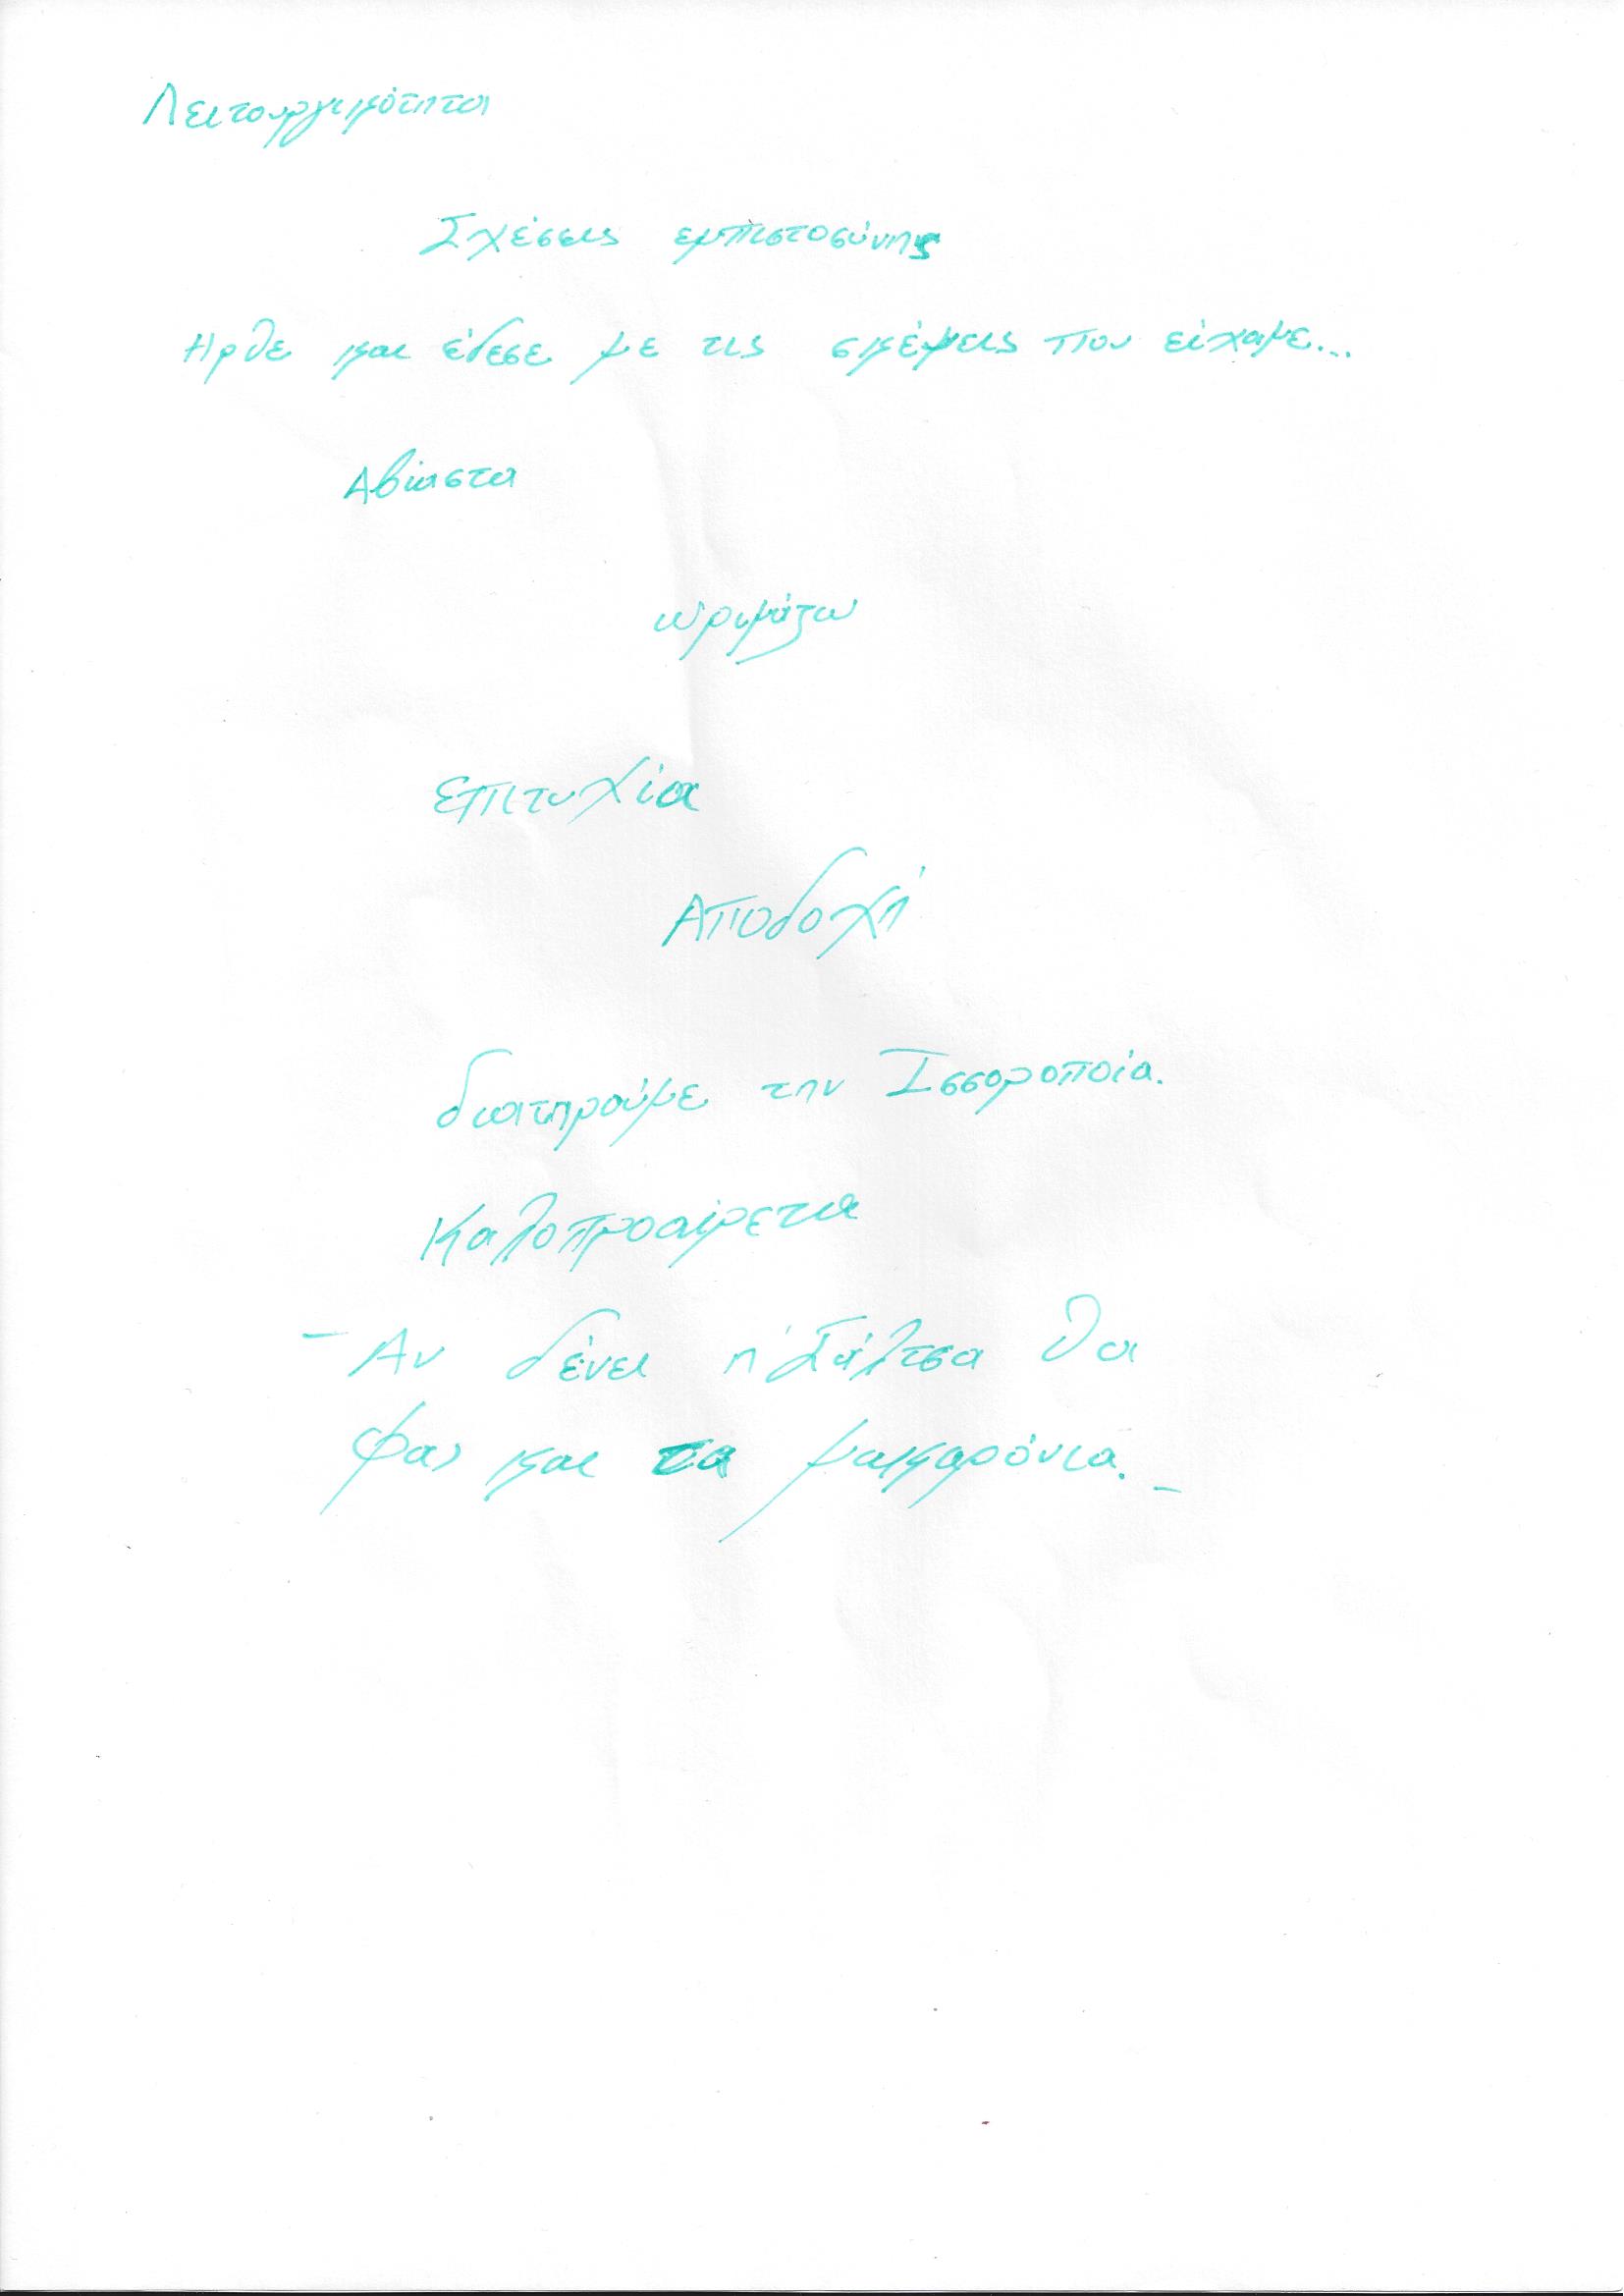 Λειτουργικότητα
Σχέσεις εμπιστοσύνης
Ηρθε και έδεσε με τις σκέψεις που είχαμε...
Αβίαστα
ωριμάζω
Επιτυχία
Αποδοχή
διατηρούμε την Ισσοροποία.
Καλοπροαίρετα
- Αν δένει η Σάλτσα θα
φας και τα μακαρόνια. -